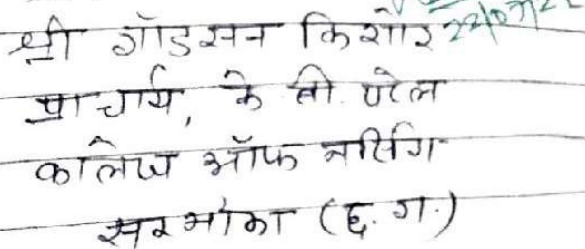 श्री गॉडसन किशोर 22/07/22
प्राचार्य, के बी. पटेल
कालेज ऑफ नर्सिंग
सरभोका (छ. ग.)